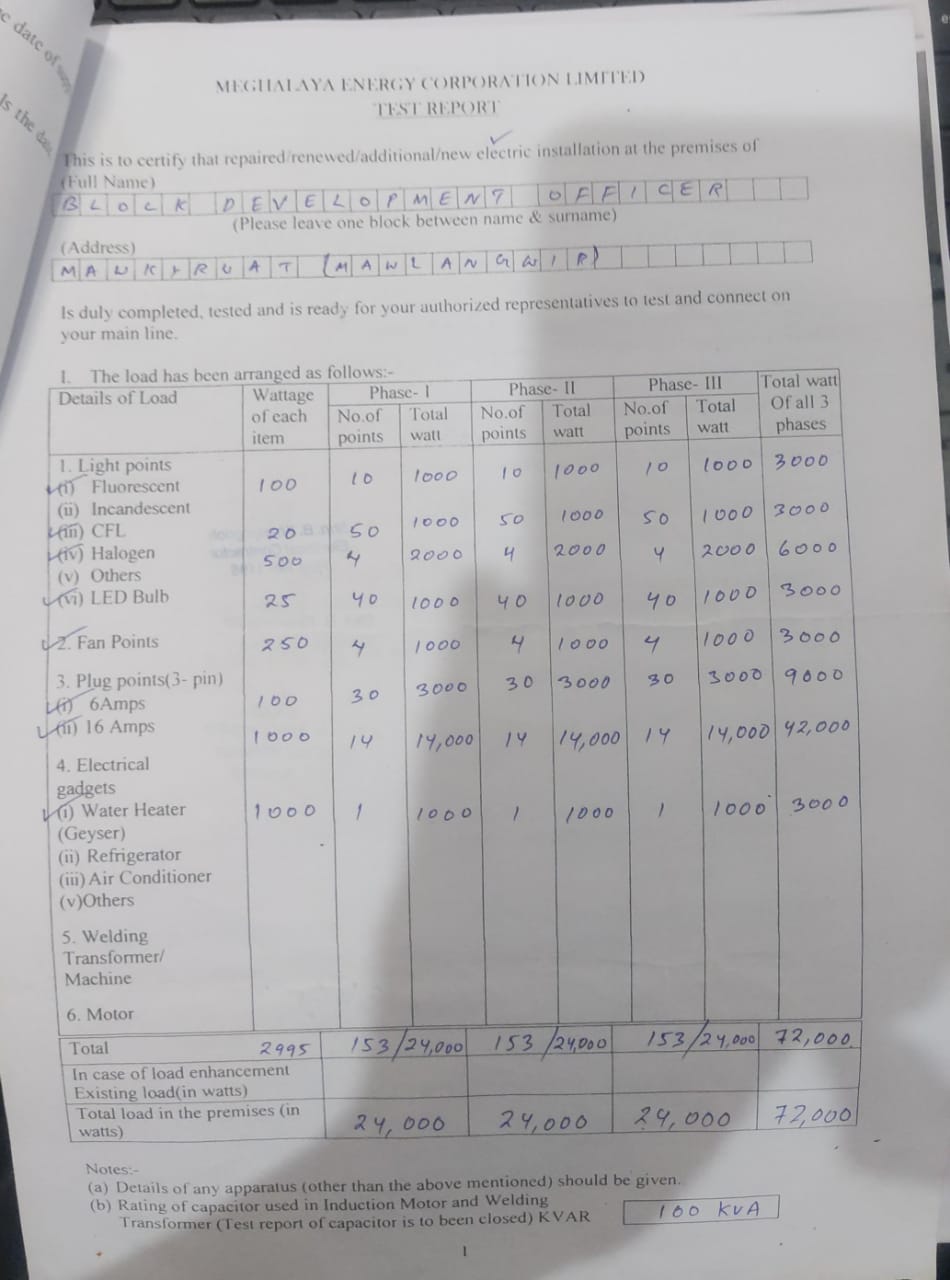 c date of supp
Is the date
MEGHALAYA ENERGY CORPORATION LIMITED
TEST REPORT
This is to certify that repaired/renewed/additional/new electric installation at the premises of
(Full Name)
BLOCK DEVELOPMENT OFFICER
(Please leave one block between name & surname)
(Address)
MAWKYRUAT (MAWLANGWIR)
Is duly completed, tested and is ready for your authorized representatives to test and connect on
your main line.
I. The load has been arranged as follows:-
Details of Load Wattage of each item Phase- I Phase- II Phase- III Total watt Of all 3 phases
No.of points Total watt No.of points Total watt No.of points Total watt
1. Light points
(i) Fluorescent 100 10 1000 10 1000 10 1000 3000
(ii) Incandescent
(iii) CFL 20 50 1000 50 1000 50 1000 3000
(iv) Halogen 500 4 2000 4 2000 4 2000 6000
(v) Others
(vi) LED Bulb 25 40 1000 40 1000 40 1000 3000
2. Fan Points 250 4 1000 4 1000 4 1000 3000
3. Plug points(3- pin)
(i) 6Amps 100 30 3000 30 3000 30 3000 9000
(ii) 16 Amps 1000 14 14,000 14 14,000 14 14,000 42,000
4. Electrical
gadgets
(i) Water Heater 1000 1 1000 1 1000 1 1000 3000
(Geyser)
(ii) Refrigerator
(iii) Air Conditioner
(v)Others
5. Welding
Transformer/
Machine
6. Motor
Total 2995 153/24,000 153/24,000 153/24,000 72,000
In case of load enhancement
Existing load(in watts)
Total load in the premises (in
watts) 24,000 24,000 24,000 72,000
Notes:-
(a) Details of any apparatus (other than the above mentioned) should be given.
(b) Rating of capacitor used in Induction Motor and Welding
Transformer (Test report of capacitor is to been closed) KVAR 100 KVA
1